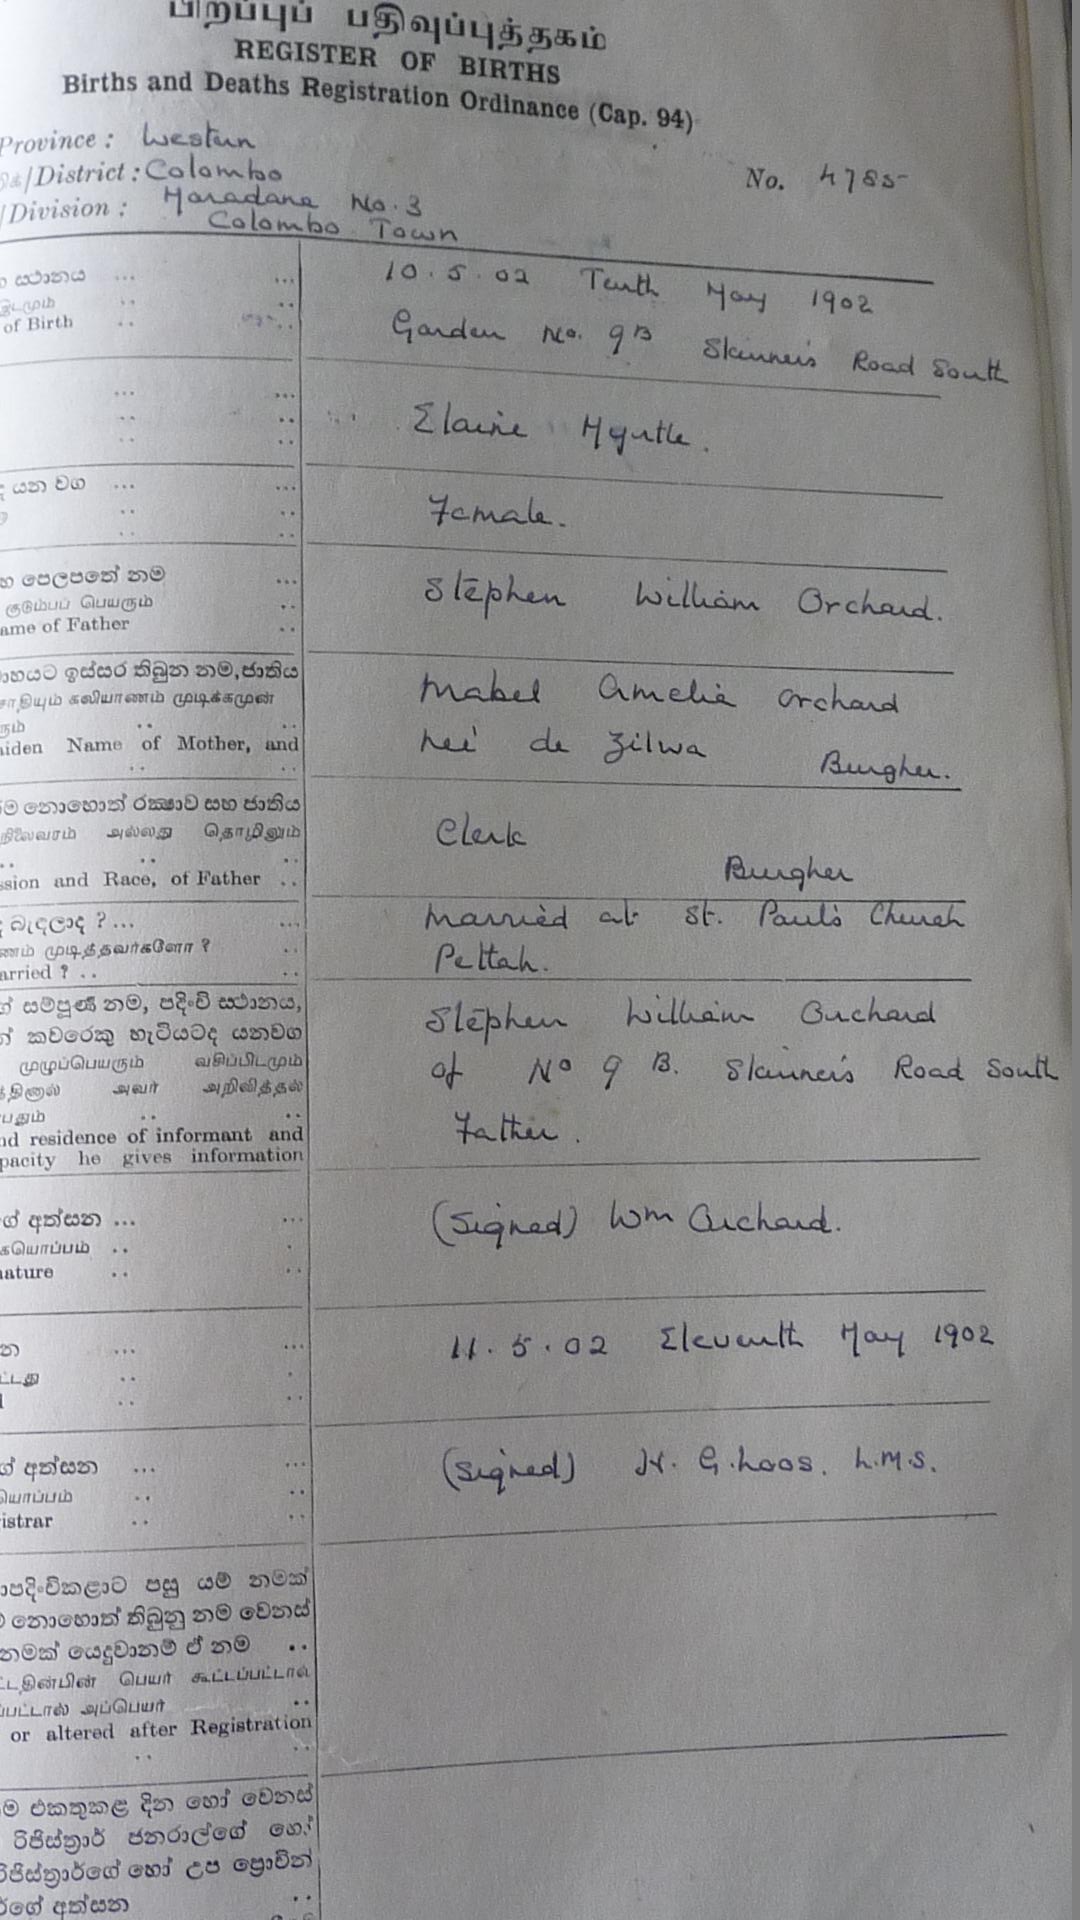 பிறப்புப் பதிவுப்புத்தகம்
REGISTER OF BIRTHS
Births and Deaths Registration Ordinance (Cap. 94)
Province : Western
/District : Colombo
No. 4785
/Division : Maradana No. 3
Colombo Town
ස්ථානය ... ...
இடமும் .. ..
of Birth .. ..
10.5.02 Tenth May 1902
Garden No. 9B Skinner's Road South
Elaine Myrtle.
යන වග ... ...
Female.
පෙලපතේ නම ...
குடும்பப் பெயரும் ..
ame of Father ..
Stephen William Orchard.
ඉස්සර තිබුන නම, ජාතිය
கலியாணம் முடிக்கமுன்
ரும் .. ..
iden Name of Mother, and
.. ..
Mabel Amelia Orchard
neé de Zilwa Burgher.
නොහොත් රක්ෂාව සහ ජාතිය
நிலைவரம் அல்லது தொழிலும்
.. .. ..
ssion and Race, of Father ..
Clerk
Burgher
බැඳලාද ? ... ...
ணம் முடித்தவர்களோ ? ..
arried ? .. ..
Married at St. Paul's Church
Pettah.
සම්පූර්ණ නම, පදිංචි ස්ථානය,
කවරෙකු හැටියටද යනවග
முழுப்பெயரும் வசிப்பிடமும்
த்தினால் அவர் அறிவித்தல்
பதும் .. ..
nd residence of informant and
pacity he gives information
Stephen William Orchard
of No 9 B. Skinner's Road South
Father.
ගේ අත්සන ... ...
கையொப்பம் .. .
nature .. ..
(Signed) Wm Orchard.
න ... ...
ட்டது .. .
d .. ..
11.5.02 Eleventh May 1902
ගේ අත්සන ... ...
யொப்பம் .. ..
istrar .. ..
(Signed) H. G. Loos. L.M.S.
පදිංචිකළාට පසු යම් නමක්
නොහොත් තිබුනු නම වෙනස්
නමක් යෙදුවානම් ඒ නම ..
ட்டதின்பின் பெயர் கூட்டப்பட்டால்
ப்பட்டால் அப்பெயர் ..
or altered after Registration
.. ..
ම එකතුකළ දින හෝ වෙනස්
රිජිස්ත්‍රාර් ජනරාල්ගේ හෝ
රිජිස්ත්‍රාර්ගේ හෝ උප ප්‍රොවින්
ර්ගේ අත්සන ..